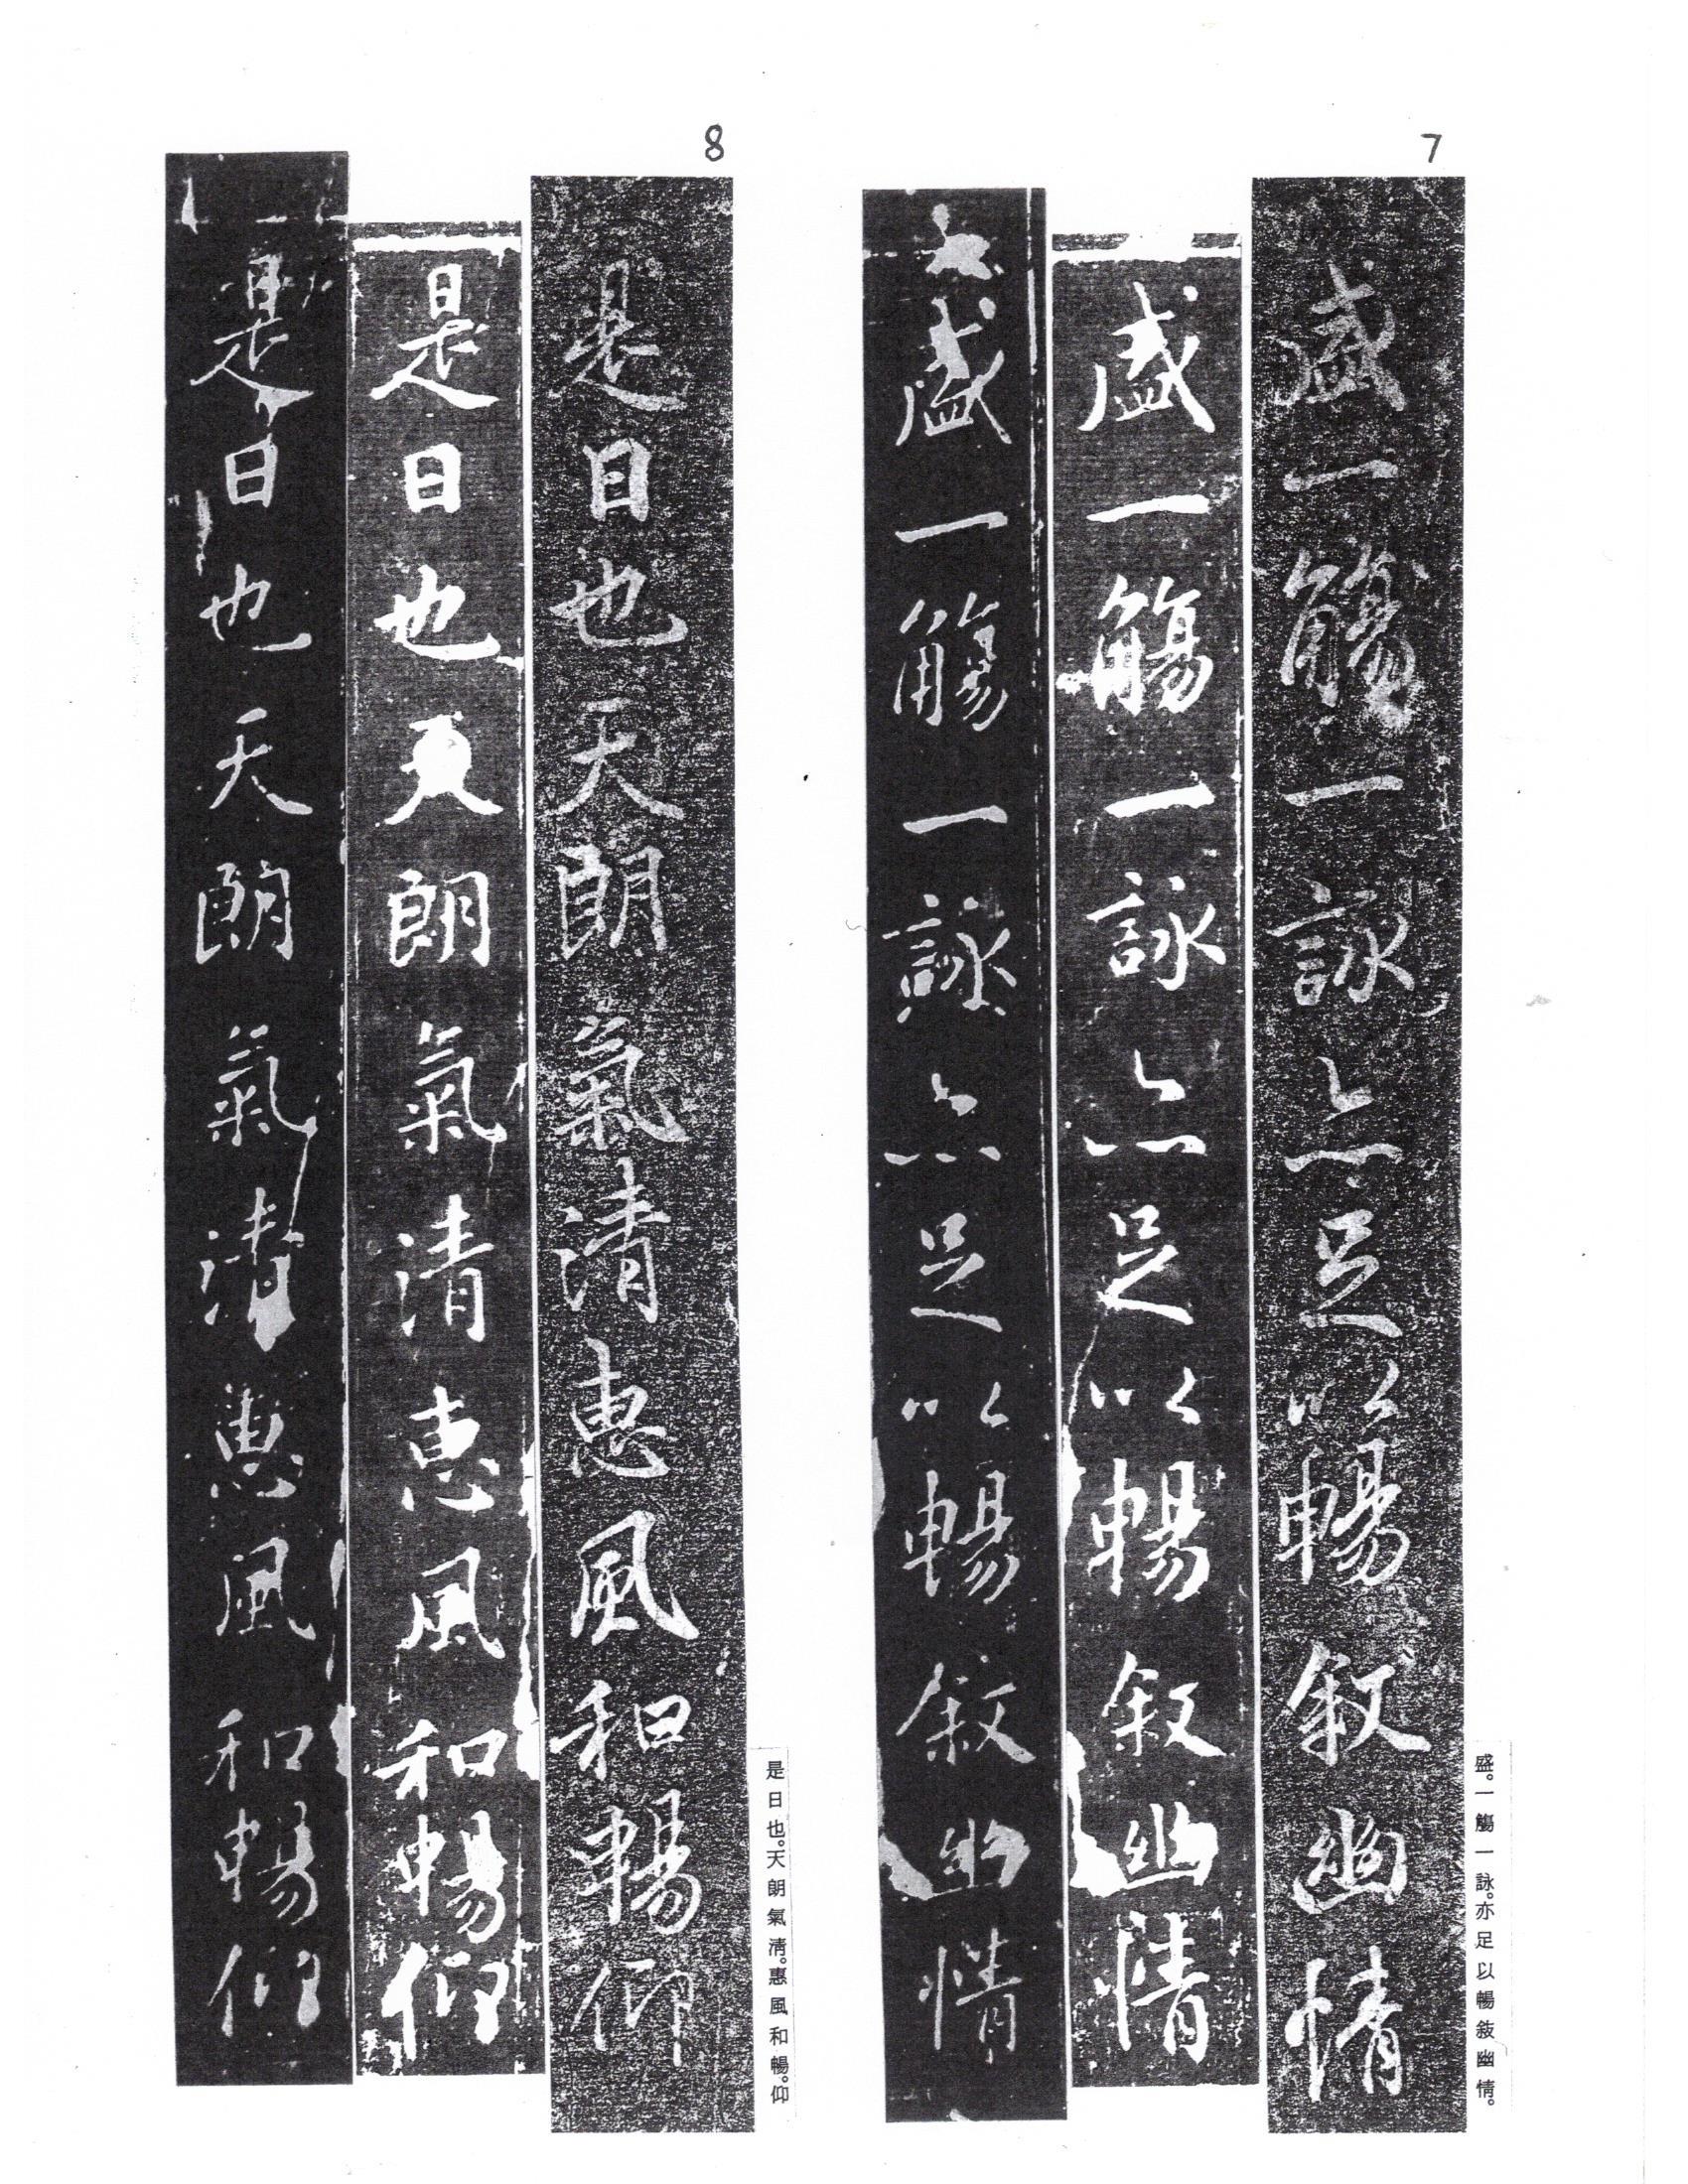 7
盛一觴一詠亦足以暢敘幽情
盛一觴一詠亦足以暢敘幽情
盛一觴一詠亦足以暢敘幽情
盛。一觴一詠。亦足以暢敍幽情。
8
是日也天朗氣清惠風和暢仰
是日也天朗氣清惠風和暢仰
是日也天朗氣清惠風和暢仰
是日也。天朗氣清。惠風和暢。仰